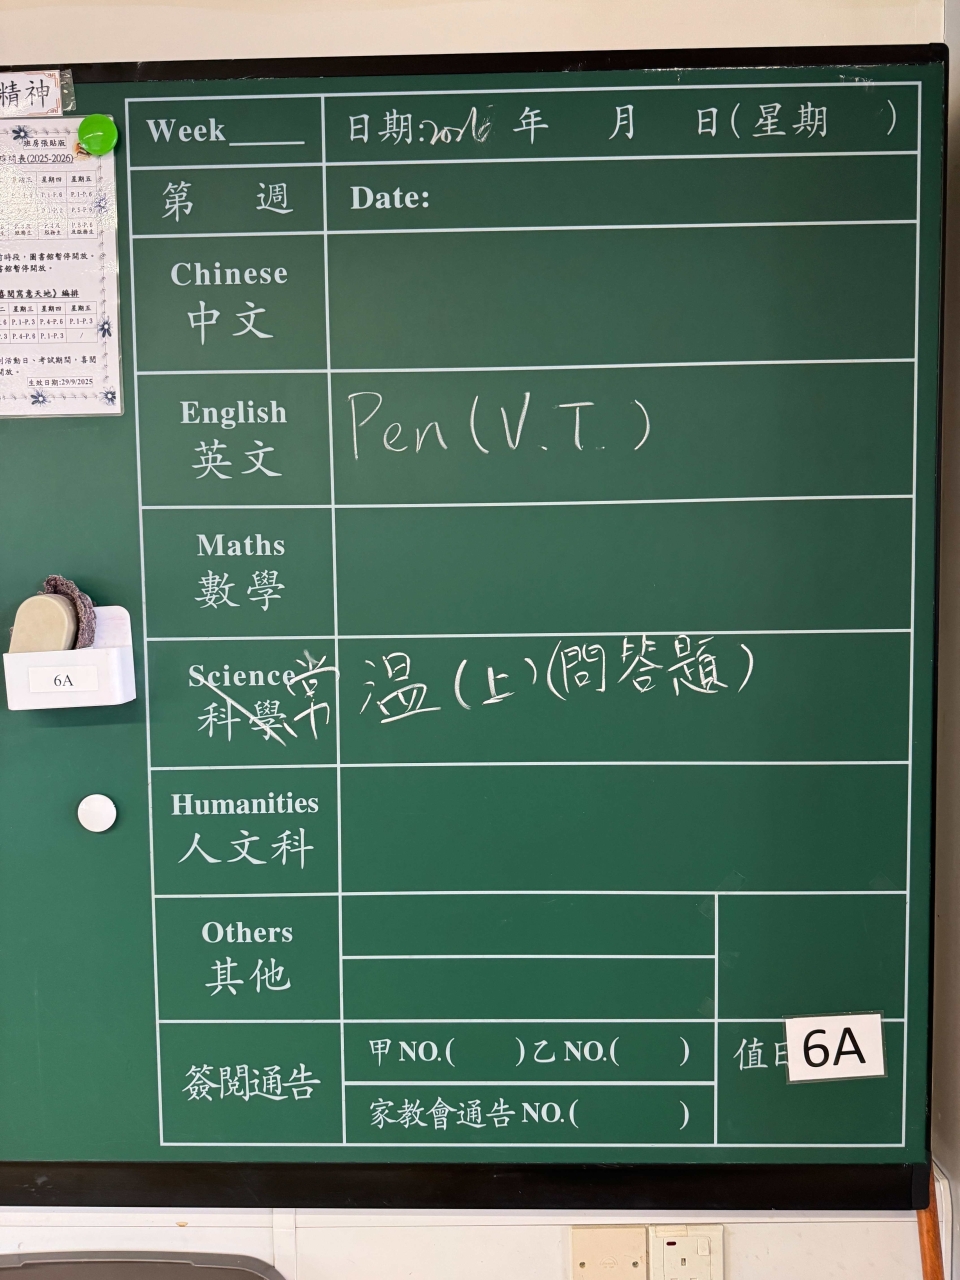 精神
班房張貼版
(2025-2026)
星期四 星期五
P.1-P.6
時段,圖書館暫停開放。
書館暫停開放。
喜閱寫意天地》編排
二 星期三 星期四 星期五
P.1-P.3 P.4-P.6 P.1-P.3
P.3 P.4-P.6 P.1-P.3 /
活動日、考試期間,喜閱
開放。
生效日期:29/9/2025
6A
Week____ 日期:2026 年 月 日(星期 )
第 週 Date:
Chinese
中文
English
英文
Pen (V.T.)
Maths
數學
Science
科學
常 溫(上)(問答題)
Humanities
人文科
Others
其他
簽閱通告
甲 NO.( )乙 NO.( )
家教會通告 NO.( )
值日
6A